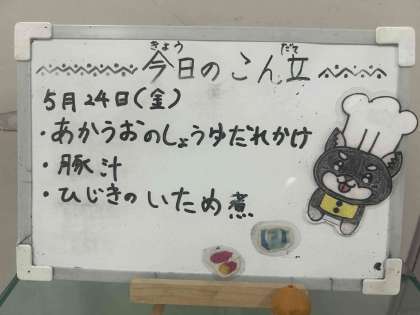 今日のこん立
5月24日(金)
・あかうおのしょうゆだれかけ
・豚汁
・ひじきのいため煮